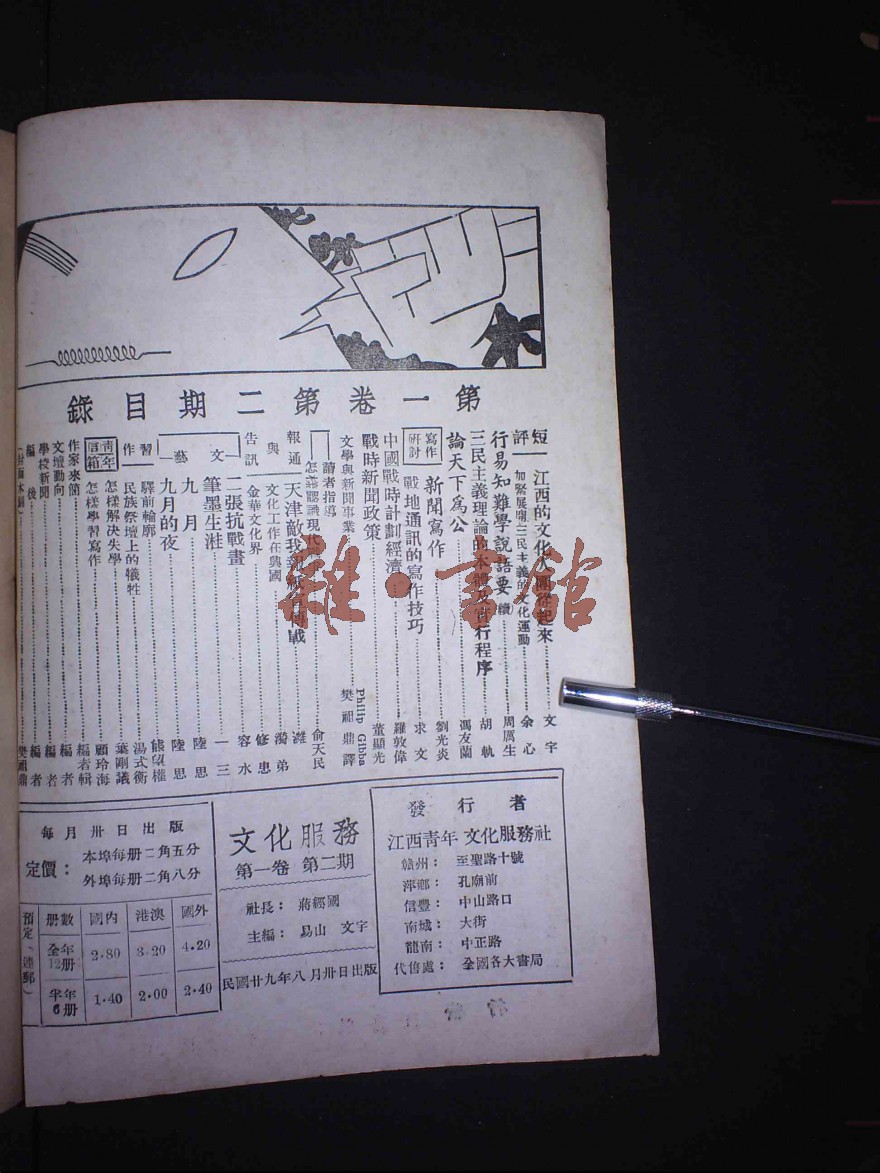 第一卷第二期目錄
短評
江西的文化大團從起來 文宇
加緊展開三民主義的文化運動 余心
行易知難學說語要(續) 周厲生
三民主義理論的本體及實行程序 胡軌
論天下爲公 馮友蘭
寫作研討
新聞寫作 劉光炎
戰地通訊的寫作技巧 求文
中國戰時計劃經濟 羅敦偉
戰時新聞政策 董顯光
文學與新聞事業 Philip Gibba 樊祖鼎譯
讀者指導
怎樣認識現代 俞天民
報通與告訊
天津敵我報紙宣傳戰 濰
文化工作在興國 蔼弟
金華文化界 修惠
文藝
二張抗戰畫 容水
筆墨生涯 一三
九月 陸思
九月的夜 陸思
習作
驛前輪廓 熊望權
民族祭壇上的犧牲 湯式衡
青年信箱
怎樣解決失學 葉剛議
怎樣學習寫作 顧玲海
作家來簡 編者輯
文壇動向 編者
學校新聞 編者
編後 編者
(封面木刻) 樊祖鼎
發行者
江西青年文化服務社
贛州：至聖路十號
萍鄉：孔廟前
信豐：中山路口
南城：大街
龍南：中正路
代售處：全國各大書局
文化服務
第一卷 第二期
社長：蔣經國
主編：易山 文宇
民國廿九年八月卅日出版
每月卅日出版
定價：
本埠每册二角五分
外埠每册二角八分
預定(連郵)
册數 國內 港澳 國外
全年12册 2.80 3.20 4.20
半年6册 1.40 2.00 2.40
雜·書館